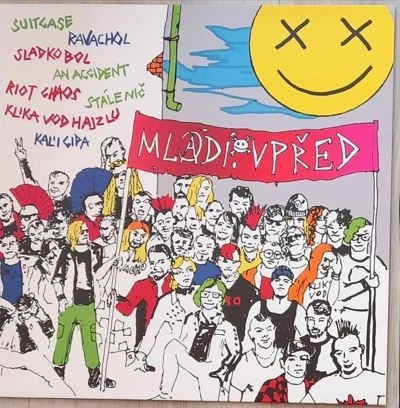 SUITCASE
RAVACHOL
SLADKOBOL
AN ACCIDENT
RIOT CHAOS
STÁLE NIČ
KLIKA VOD HAJZLU
KALI GIPA
MLADÍ VPŘED
KLIKA
VOD